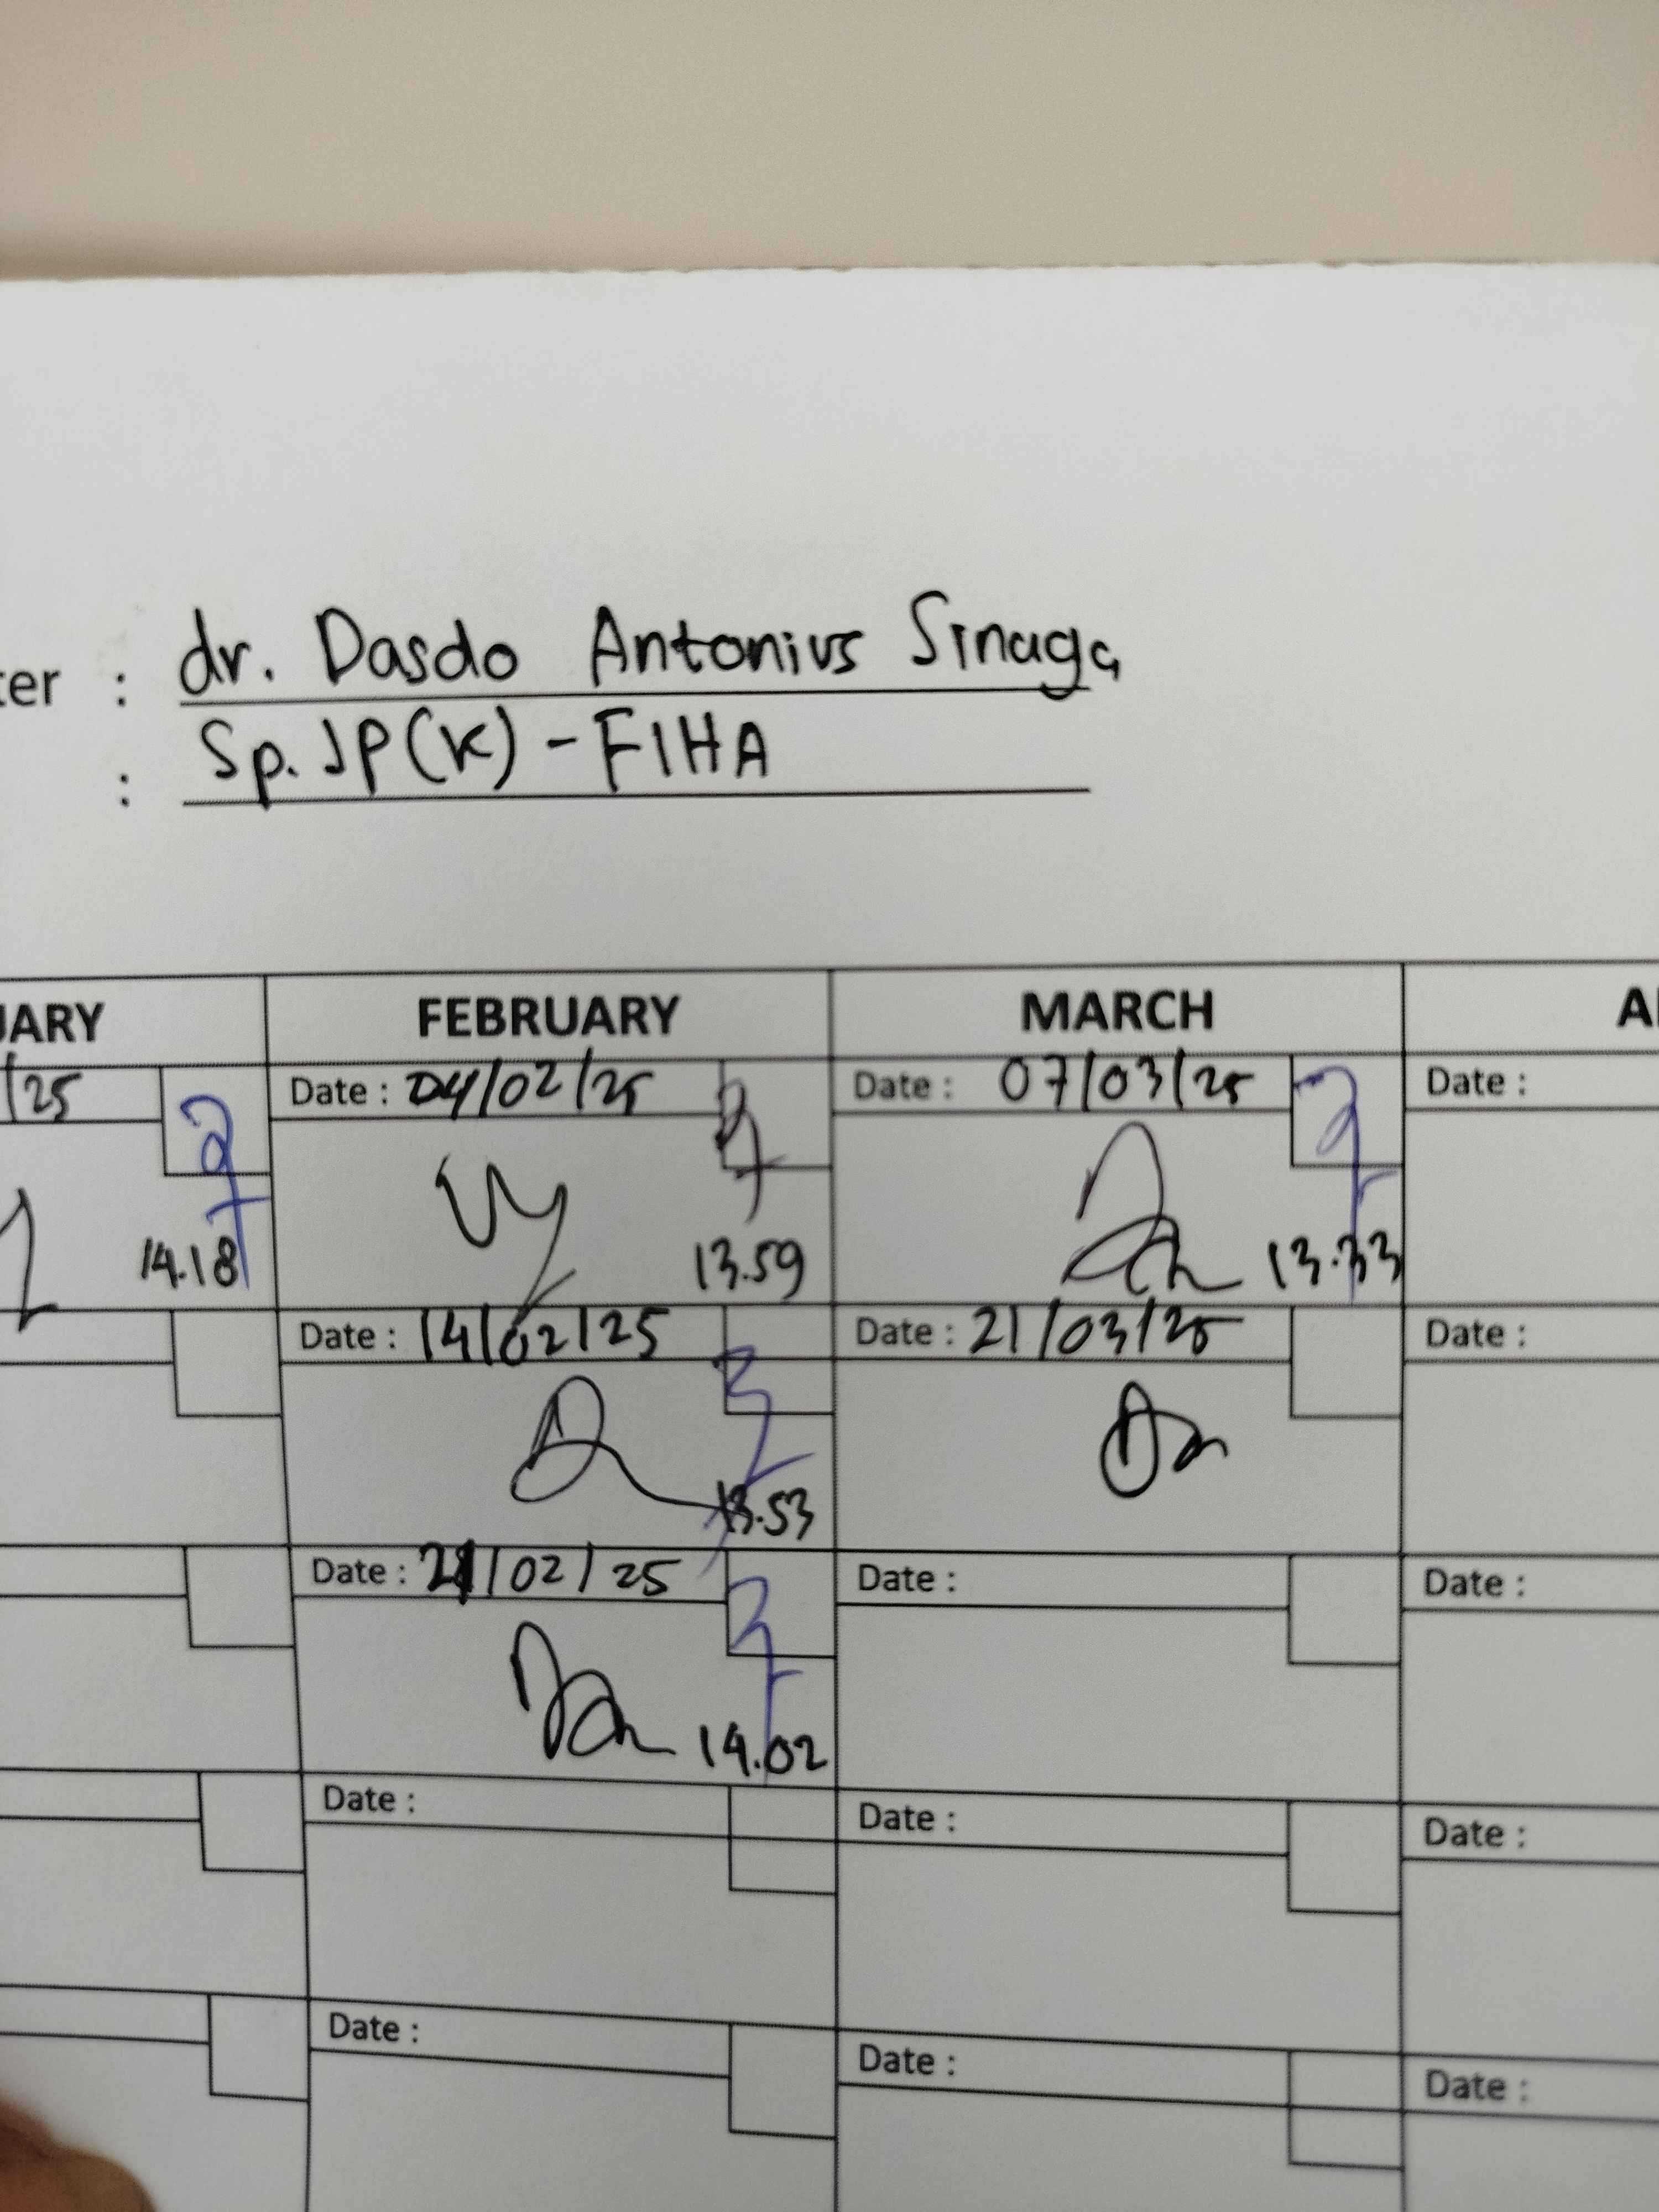 ter : dr. Dasdo Antonius Sinaga
: Sp.JP(K) - FIHA
UARY FEBRUARY MARCH
/25 Date : 04/02/25 Date : 07/03/25 Date :
14.18 13.59 13.33
Date : 14/02/25 Date : 21/03/25 Date :
13.53
Date : 21/02/25 Date : Date :
14.02
Date : Date : Date :
Date : Date : Date :